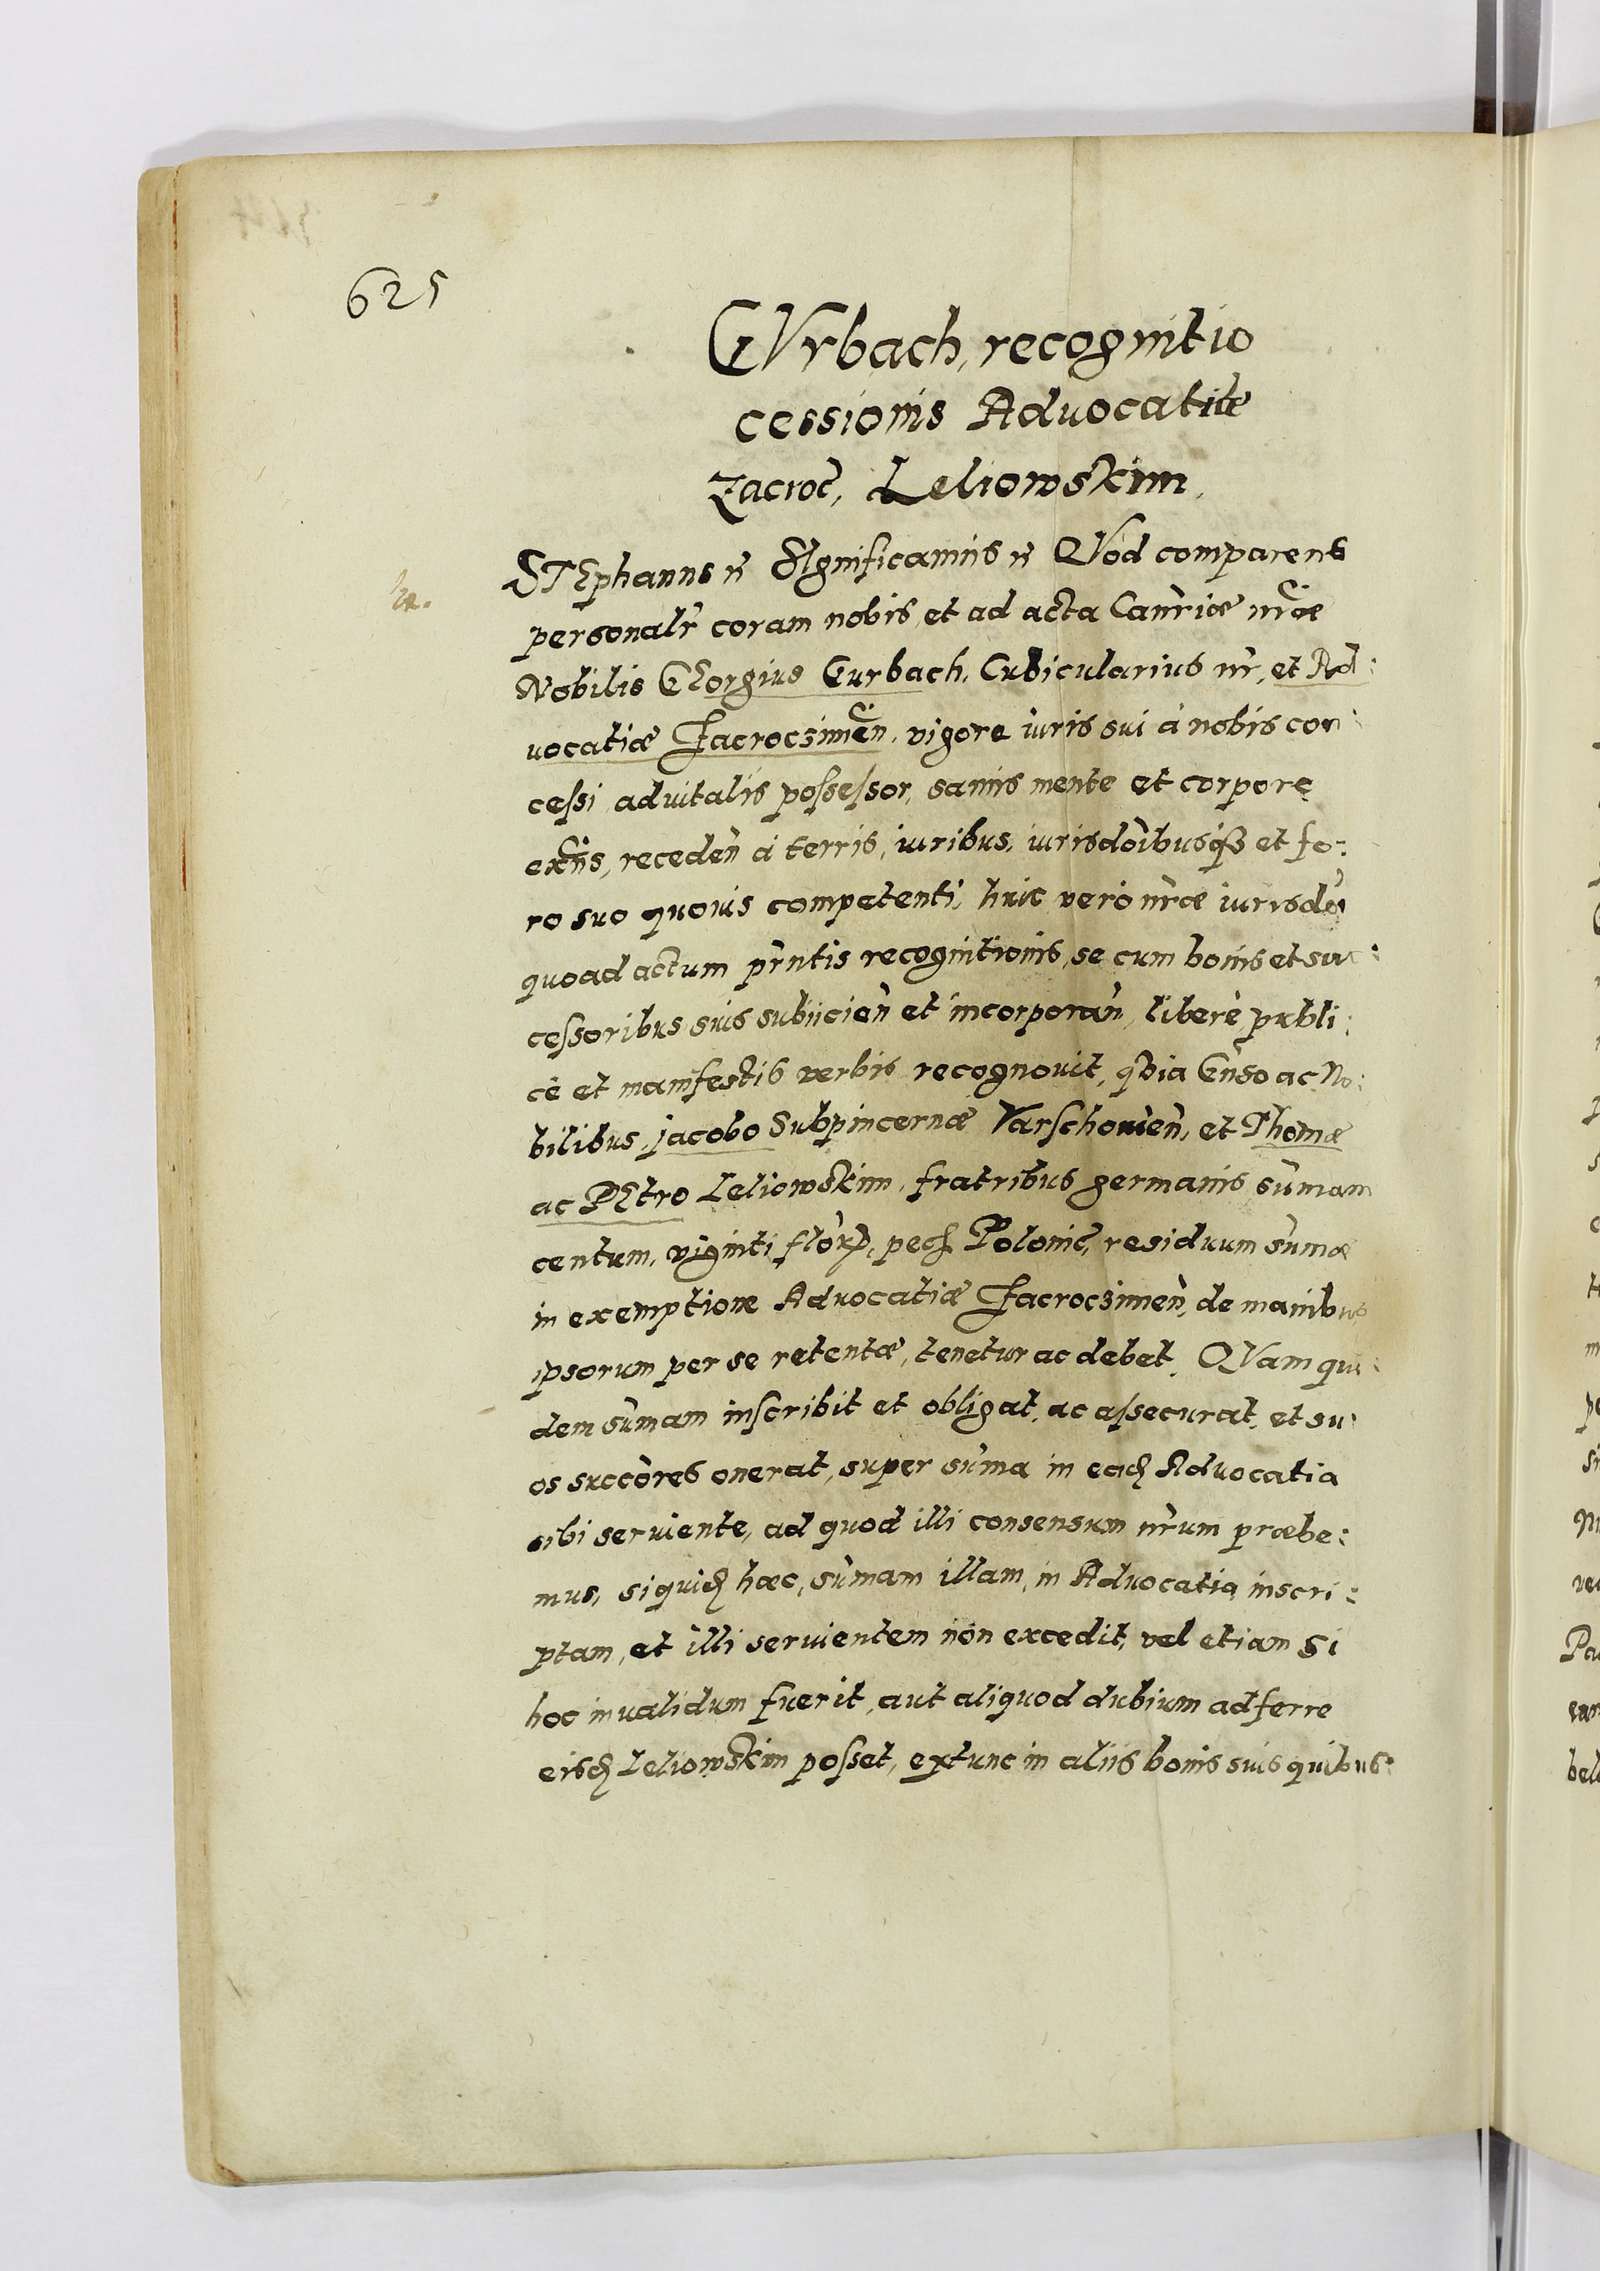 625
GVrbach, recognitio
cessionis Aduocatiæ
Zacroc̃, Leliowskim.
STEphanus  SIgnificamus  QVod comparens
personalr̃ coram nobis, et ad acta Canr̃iæ nr̃æ
Nobilis GEorgius Gurbach, Cubicularius nr̃, et Ad:
uocatiæ Zacroczimen̄, vigore iuris sui à nobis con:
cessi aduitalis possessor, sanus mente et corpore
exn̄s, receden̄ à terris, iuribus, iurisdõibusq3 et fo:
ro suo quouis competenti, huic verò nr̃æ iurisdõi
quoad actum pr̃ntis recognitionis, se cum bonis et suc:
cessoribus suis subiicien̄ et incorporan̄, liberè publi:
cè et manifestis verbis recognouit, qVia Gn̄so ac No:
bilibus, jacobo Subpincernæ Varschouien̄, et Thomæ
ac PEtro Leliowskim, fratribus germanis, sum̄am
centum, viginti flor̃, pec Polonic̃, residuum sum̄æ
in exemptione Aduocatiæ Zacroczimen̄, de manibus
ipsorum per se retentæ, tenetur ac debet. QVam qui:
dem sum̄am inscribit et obligat, ac assecurat, et su:
os succōres onerat, super sum̄a in ead Aduocatia
sibi seruiente, ad quod illi consensum nr̃um præbe:
mus, siquid hæc, sum̄am illam, in Aduocatia inscri:
ptam, et illi seruientem non excedit, vel etiam si
hoc inualidum fuerit, aut aliquod dubium adferre
eisd Leliowskim posset, extunc in aliis bonis suis quibus: